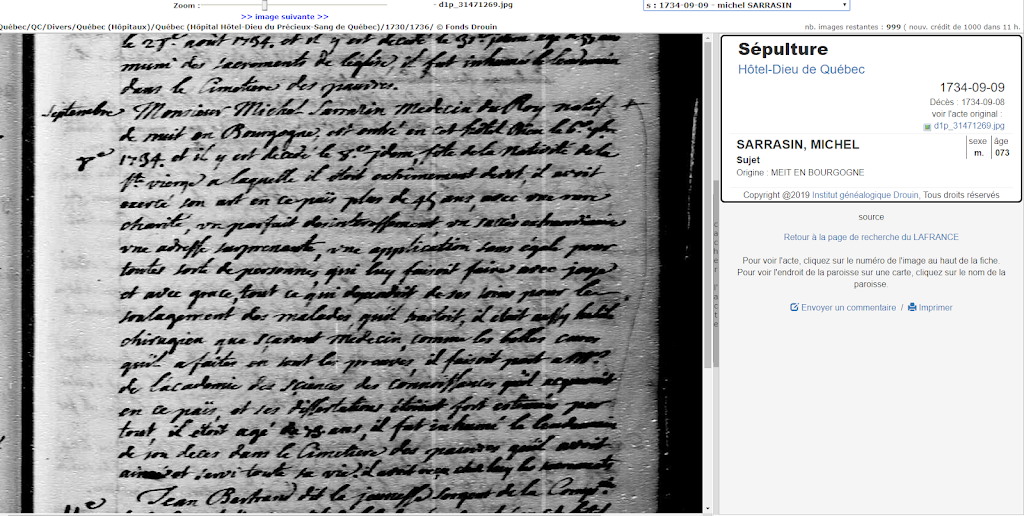 Zoom :
- d1p_31471269.jpg
s : 1734-09-09 - michel SARRASIN
>> image suivante >>
Québec/QC/Divers/Québec (Hôpitaux)/Québec (Hôpital Hôtel-Dieu du Précieux-Sang de Québec)/1730/1736/ © Fonds Drouin
nb. images restantes : 999 ( nouv. crédit de 1000 dans 11 h.
muni des sacrements de l'eglise, il fut inhumé le lendemain
dans le Cimetiere des pauvres.
septembre Monsieur Michel Sarrazin Medecin du Roy natif
de nuit en Bourgogne, est entré en cet hôtel Dieu le 6.e 7bre
1734. et il y est decedé le 8.e jdem, fête de la nativité de la
ste vierge a laquelle il étoit extrêmement devot, il avoit
exercé son art en ce païs plus de 45 ans, avec une
charité, un parfait desinteressement un succès
une adresse surprenante, une application sans egale pour
toutes sorte de personnes, qui luy faisoit faire avec joye
et avec grace, tout ce qui dependoit de ses soins pour le
soulagement des malades quil traitoit, il étoit aussy habile
chirugien, que scavant medecin, comme les belles cures
quil a faites en sont les preuves, il faisoit part a
de l'academie des sciences des connoissances quil acqueroit
en ce païs, et ses dissertations étoient fort estimées par
tout, il étoit agé de 73 ans, il fut inhumé le lendemain
de son deces dans le Cimetiere des pauvres quil avoit
aimé et servi toute sa vie. il avoit
Jean Bertrand dit la jeunesse sergent de la Comp.e
cacher l'acte
Sépulture
Hôtel-Dieu de Québec
1734-09-09
Décès : 1734-09-08
voir l'acte original :
d1p_31471269.jpg
SARRASIN, MICHEL
sexe
m.
âge
073
Sujet
Origine : MEIT EN BOURGOGNE
Copyright @2019 Institut généalogique Drouin, Tous droits réservés
source
Retour à la page de recherche du LAFRANCE
Pour voir l'acte, cliquez sur le numéro de l'image au haut de la fiche.
Pour voir l'endroit de la paroisse sur une carte, cliquez sur le nom de la
paroisse.
Envoyer un commentaire / Imprimer